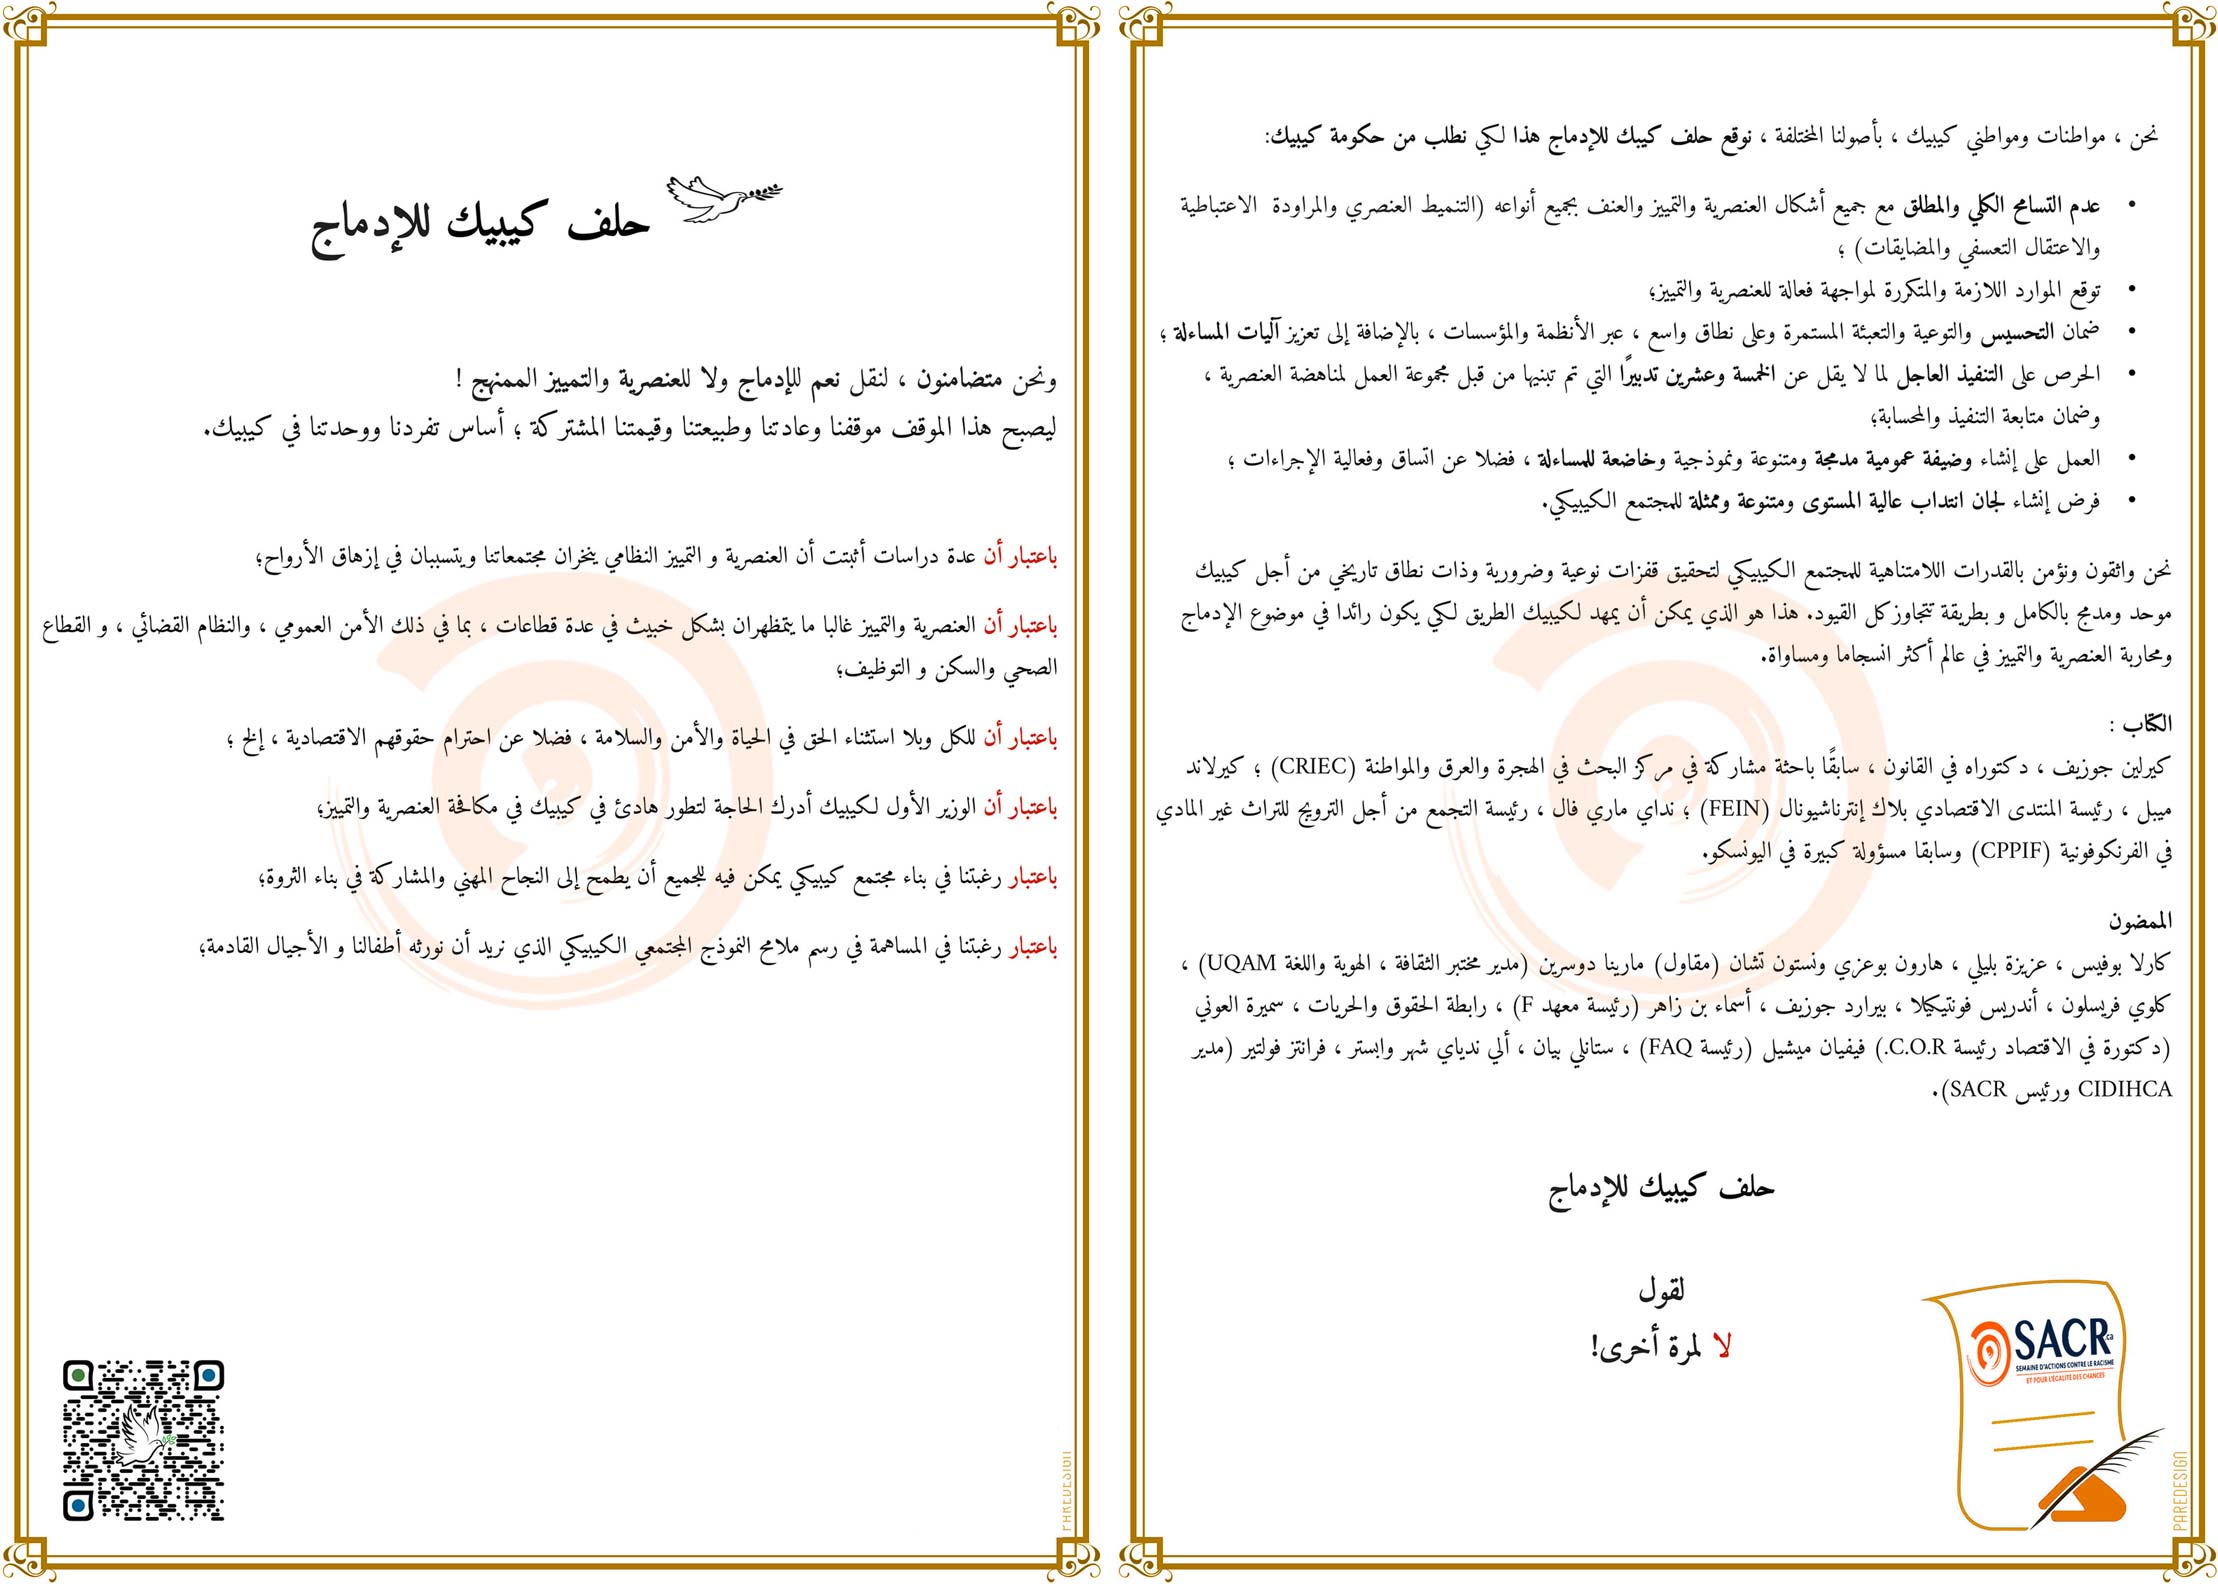 حلف كيبيك للإدماج
ونحن متضامنون ، لنقل نعم للإدماج ولا للعنصرية والتمييز الممنهج !
ليصبح هذا الموقف موقفنا وعادتنا وطبيعتنا وقيمتنا المشتركة ؛ أساس تفردنا ووحدتنا في كيبيك.
باعتبار أن عدة دراسات أثبتت أن العنصرية و التمييز النظامي ينخران مجتمعاتنا ويتسببان في إزهاق الأرواح؛
باعتبار أن العنصرية والتمييز غالبا ما يتمظهران بشكل خبيث في عدة قطاعات ، بما في ذلك الأمن العمومي ، والنظام القضائي ، و القطاع
الصحي والسكن و التوظيف؛
باعتبار أن للكل وبلا استثناء الحق في الحياة والأمن والسلامة ، فضلا عن احترام حقوقهم الاقتصادية ، إلخ ؛
باعتبار أن الوزير الأول لكيبيك أدرك الحاجة لتطور هادئ في كيبيك في مكافحة العنصرية والتمييز؛
باعتبار رغبتنا في بناء مجتمع كيبيكي يمكن فيه للجميع أن يطمح إلى النجاح المهني والمشاركة في بناء الثروة؛
باعتبار رغبتنا في المساهمة في رسم ملامح النموذج المجتمعي الكيبيكي الذي نريد أن نورثه أطفالنا و الأجيال القادمة؛
PAREDESIGN
نحن ، مواطنات ومواطني كيبيك ، بأصولنا المختلفة ، نوقع حلف كيبك للإدماج هذا لكي نطلب من حكومة كيبيك:
• عدم التسامح الكلي والمطلق مع جميع أشكال العنصرية والتمييز والعنف بجميع أنواعه (التنميط العنصري والمراودة الاعتباطية
والاعتقال التعسفي والمضايقات) ؛
• توقع الموارد اللازمة والمتكررة لمواجهة فعالة للعنصرية والتمييز؛
• ضمان التحسيس والتوعية والتعبئة المستمرة وعلى نطاق واسع ، عبر الأنظمة والمؤسسات ، بالإضافة إلى تعزيز آليات المساءلة ؛
• الحرص على التنفيذ العاجل لما لا يقل عن الخمسة وعشرين تدبيرًا التي تم تبنيها من قبل مجموعة العمل لمناهضة العنصرية ،
وضمان متابعة التنفيذ والمحسابة؛
• العمل على إنشاء وضيفة عمومية مدمجة ومتنوعة ونموذجية وخاضعة للمساءلة ، فضلا عن اتساق وفعالية الإجراءات ؛
• فرض إنشاء لجان انتداب عالية المستوى ومتنوعة وممثلة للمجتمع الكيبيكي.
نحن واثقون ونؤمن بالقدرات اللامتناهية للمجتمع الكيبيكي لتحقيق قفزات نوعية وضرورية وذات نطاق تاريخي من أجل كيبيك
موحد ومدمج بالكامل و بطريقة تتجاوزكل القيود. هذا هو الذي يمكن أن يمهد لكيبيك الطريق لكي يكون رائدا في موضوع الإدماج
ومحاربة العنصرية والتمييز في عالم أكثر انسجاما ومساواة.
الكتاب :
كيرلين جوزيف ، دكتوراه في القانون ، سابقًا باحثة مشاركة في مركز البحث في الهجرة والعرق والمواطنة (CRIEC) ؛ كيرلاند
ميبل ، رئيسة المنتدى الاقتصادي بلاك إنترناشيونال (FEIN) ؛ نداي ماري فال ، رئيسة التجمع من أجل الترويج للتراث غير المادي
في الفرنكوفونية (CPPIF) وسابقا مسؤولة كبيرة في اليونسكو.
الممضون
كارلا بوفيس ، عزيزة بليلي ، هارون بوعزي ونستون تشان (مقاول) مارينا دوسرين (مدير مختبر الثقافة ، الهوية واللغة UQAM) ،
كلوي فريسلون ، أندريس فونتيكيلا ، بيرارد جوزيف ، أسماء بن زاهر (رئيسة معهد F) ، رابطة الحقوق والحريات ، سميرة العوني
(دكتورة في الاقتصاد رئيسة C.O.R.) فيفيان ميشيل (رئيسة FAQ) ، ستانلي بيان ، ألي ندياي شهر وابستر ، فرانتز فولتير (مدير
CIDIHCA ورئيس SACR).
حلف كيبيك للإدماج
لقول
لا لمرة أخرى!
SACR.ca
SEMAINE D'ACTIONS CONTRE LE RACISME
ET POUR L'ÉGALITÉ DES CHANCES
PAREDESIGN